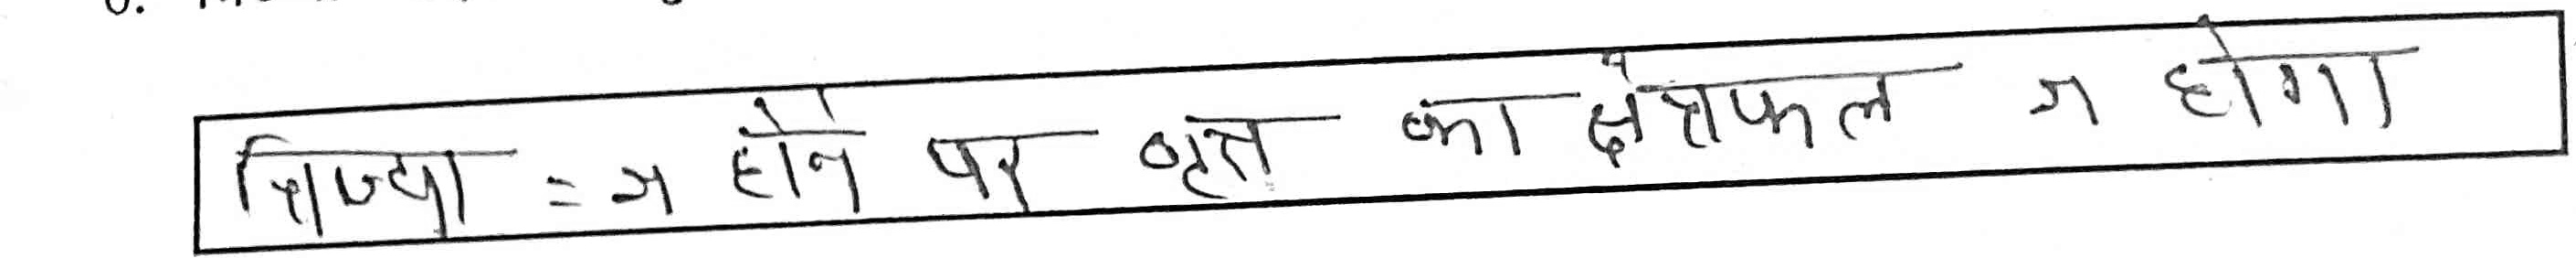 त्रिज्या = r होने पर वृत्त का क्षेत्रफल r होगा